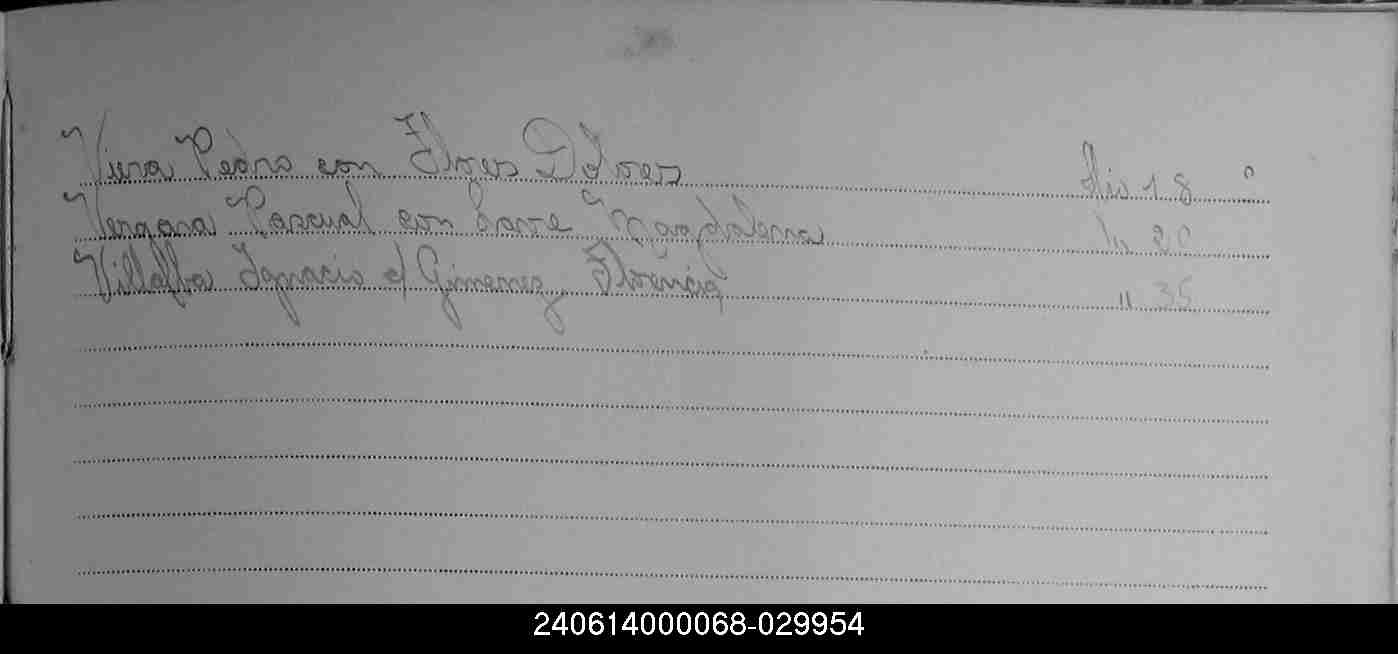 Viera Pedro con Flores Dolores flio 18
Vergara Pascual con Magdalena " 20
Villalba Ignacio c/ Gimenez Florencia " 35
240614000068-029954